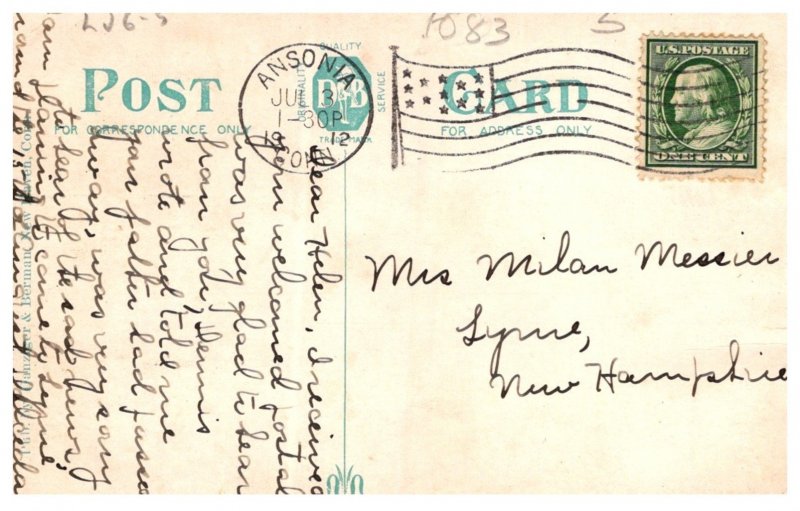 1083 5
POST CARD
FOR CORRESPONDENCE ONLY
FOR ADDRESS ONLY
QUALITY
ORIGINALITY
SERVICE
D&B
TRADEMARK
ANSONIA
JUL 3
1-30P
1912
CONN.
U.S. POSTAGE
ONE CENT
Mrs Milan Messier
Lyme,
New Hampshire
Dear Helen, I received
your welcomed postal
was very glad to hear
from you, Dennis
wrote and told me
your father had passed
away, was very sorry
to hear of the sad news.
am planning to come to Lyme
Pub. by Danziger & Berman, New Haven, Conn.